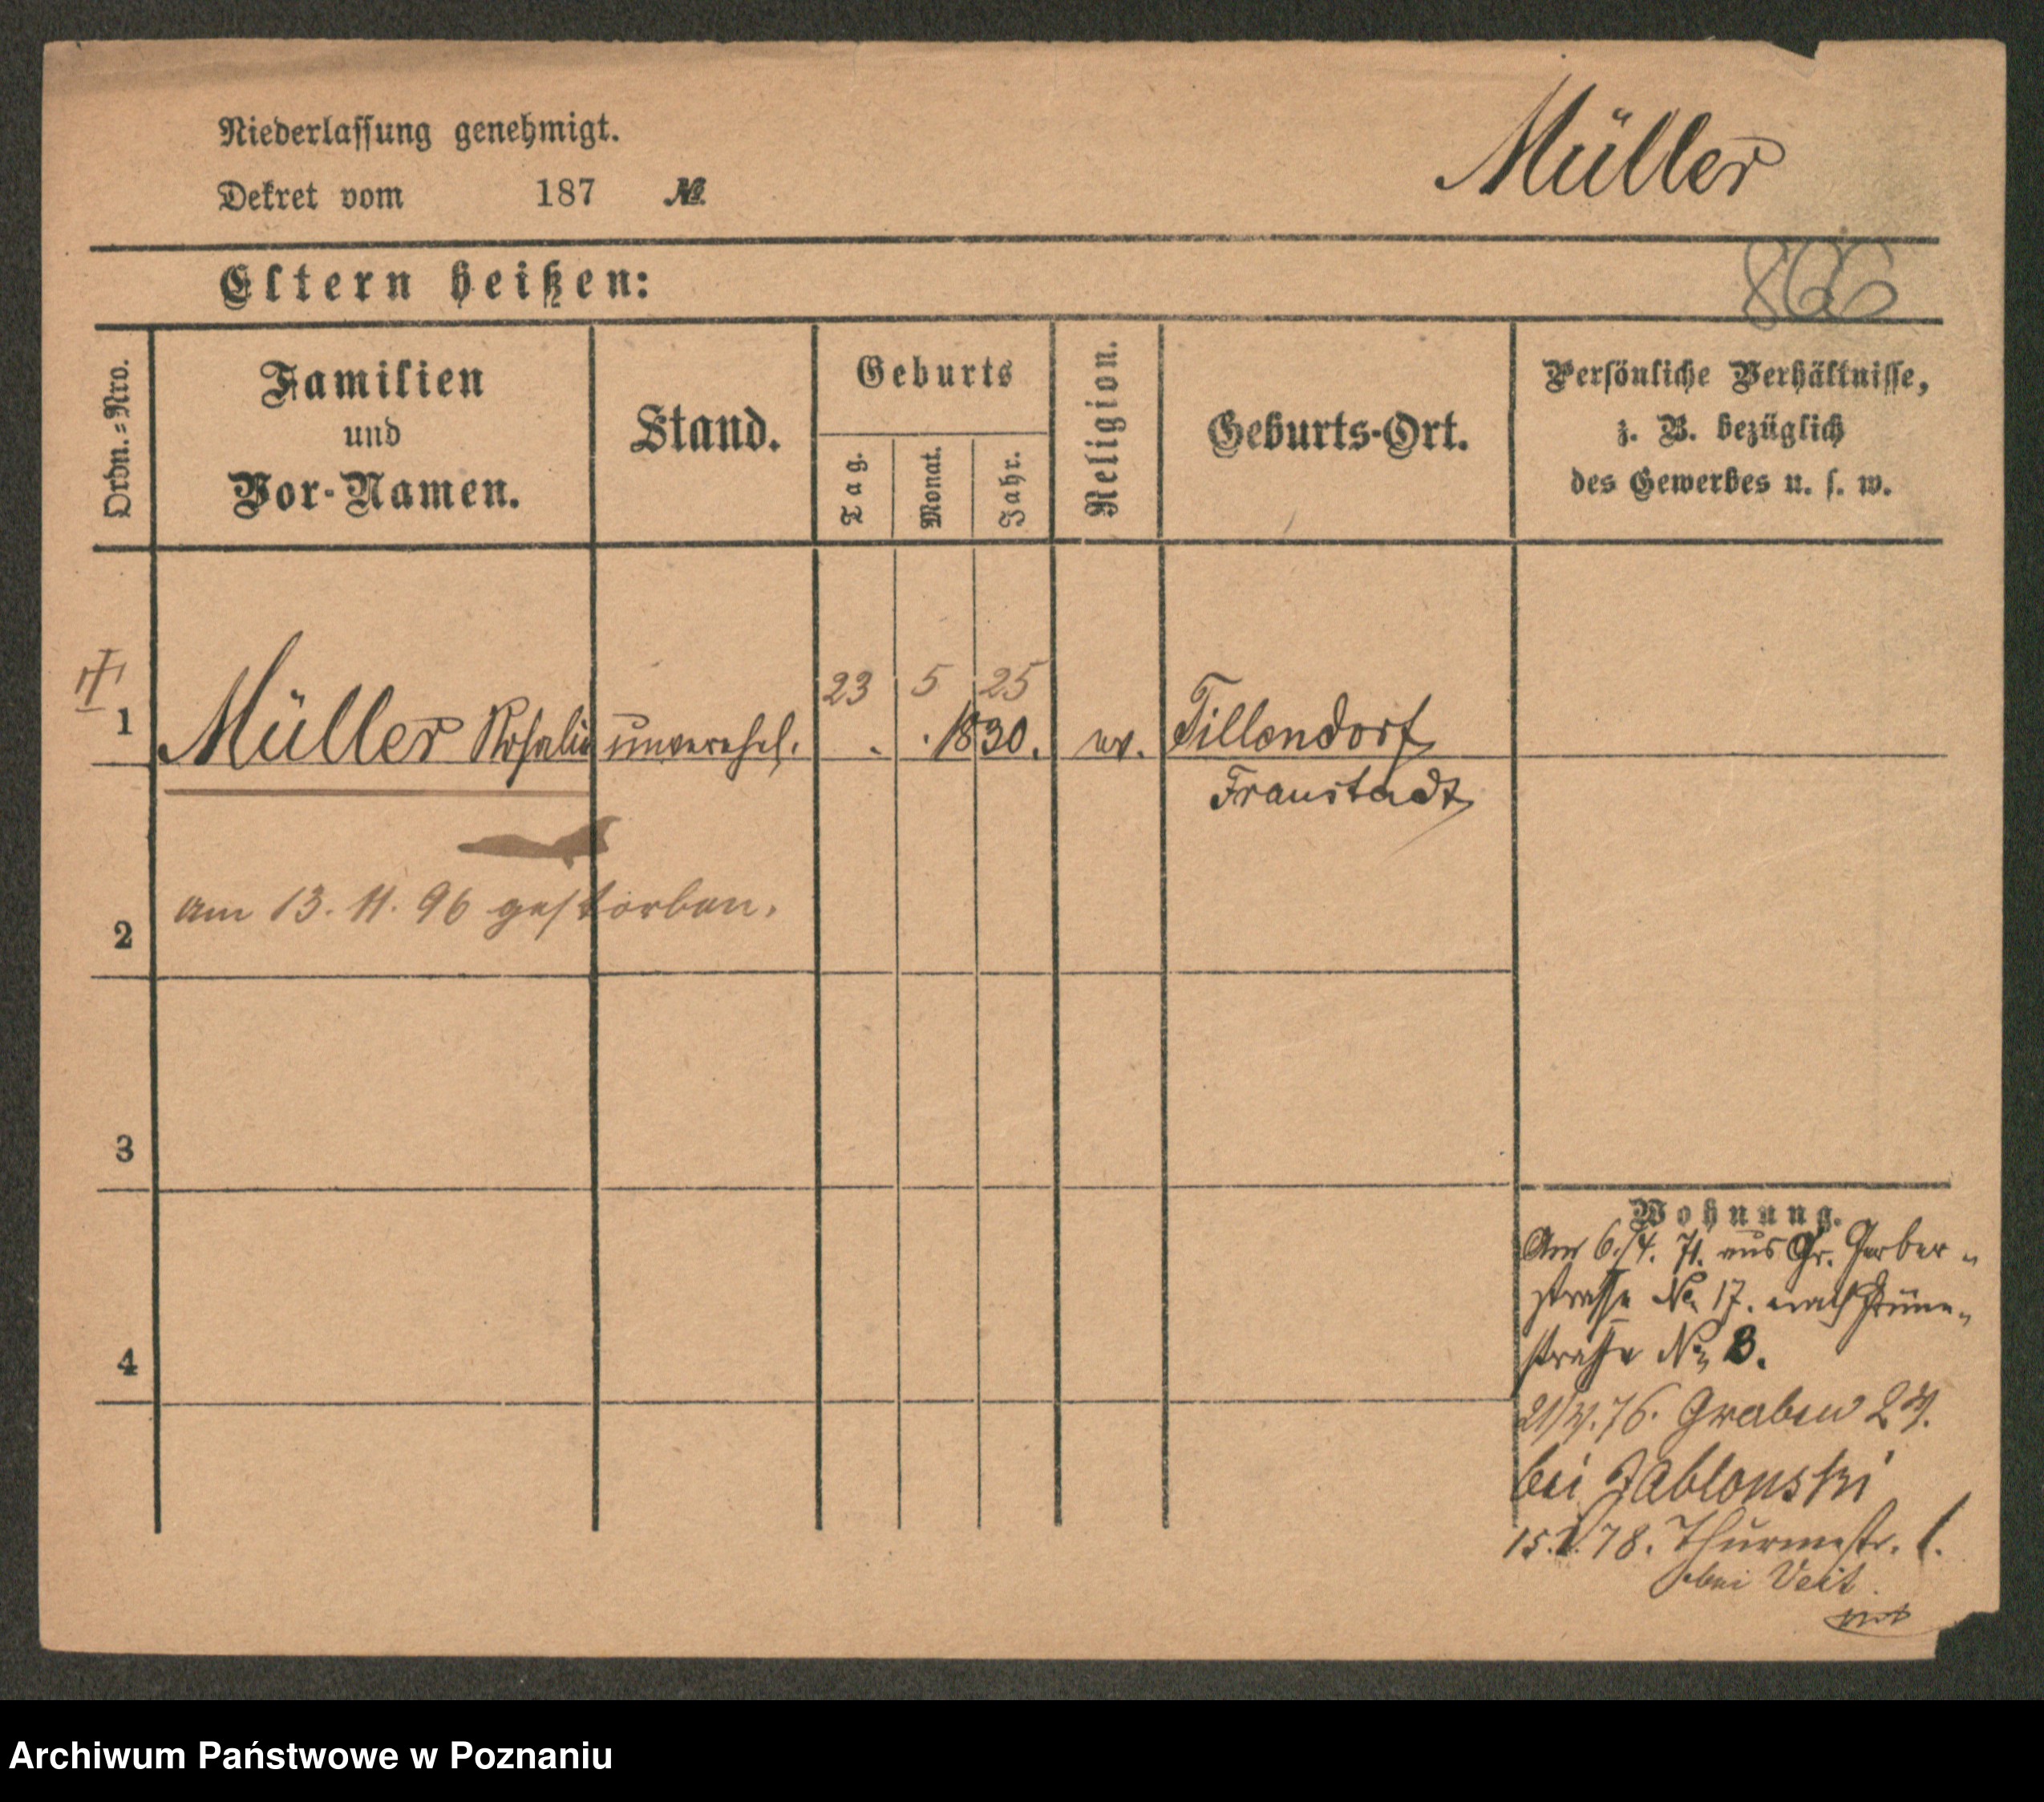 Niederlassung genehmigt.
Müller
Dekret vom 187 №
Eltern heißen:
866
Ordn.=Nro.
Familien
und
Vor-Namen.
Stand.
Geburts
Tag.
Monat.
Jahr.
Religion.
Geburts-Ort.
Persönliche Verhältnisse,
z. B. bezüglich
des Gewerbes u. s. w.
23 5 25
1 Müller Rosalie unverehel. . . 1830. ev. Tillendorf
Fraustadt
am 13. 11. 96 gestorben.
2
3
4
Wohnung.
Am 6./4. 71. aus Gr. Gerber-
strasse No. 17. nach Grüne-
strasse No. 3.
Graben 27.
bei Jablonski
15. V. 78. Thurmstr. 1.
bei Veit
Archiwum Państwowe w Poznaniu